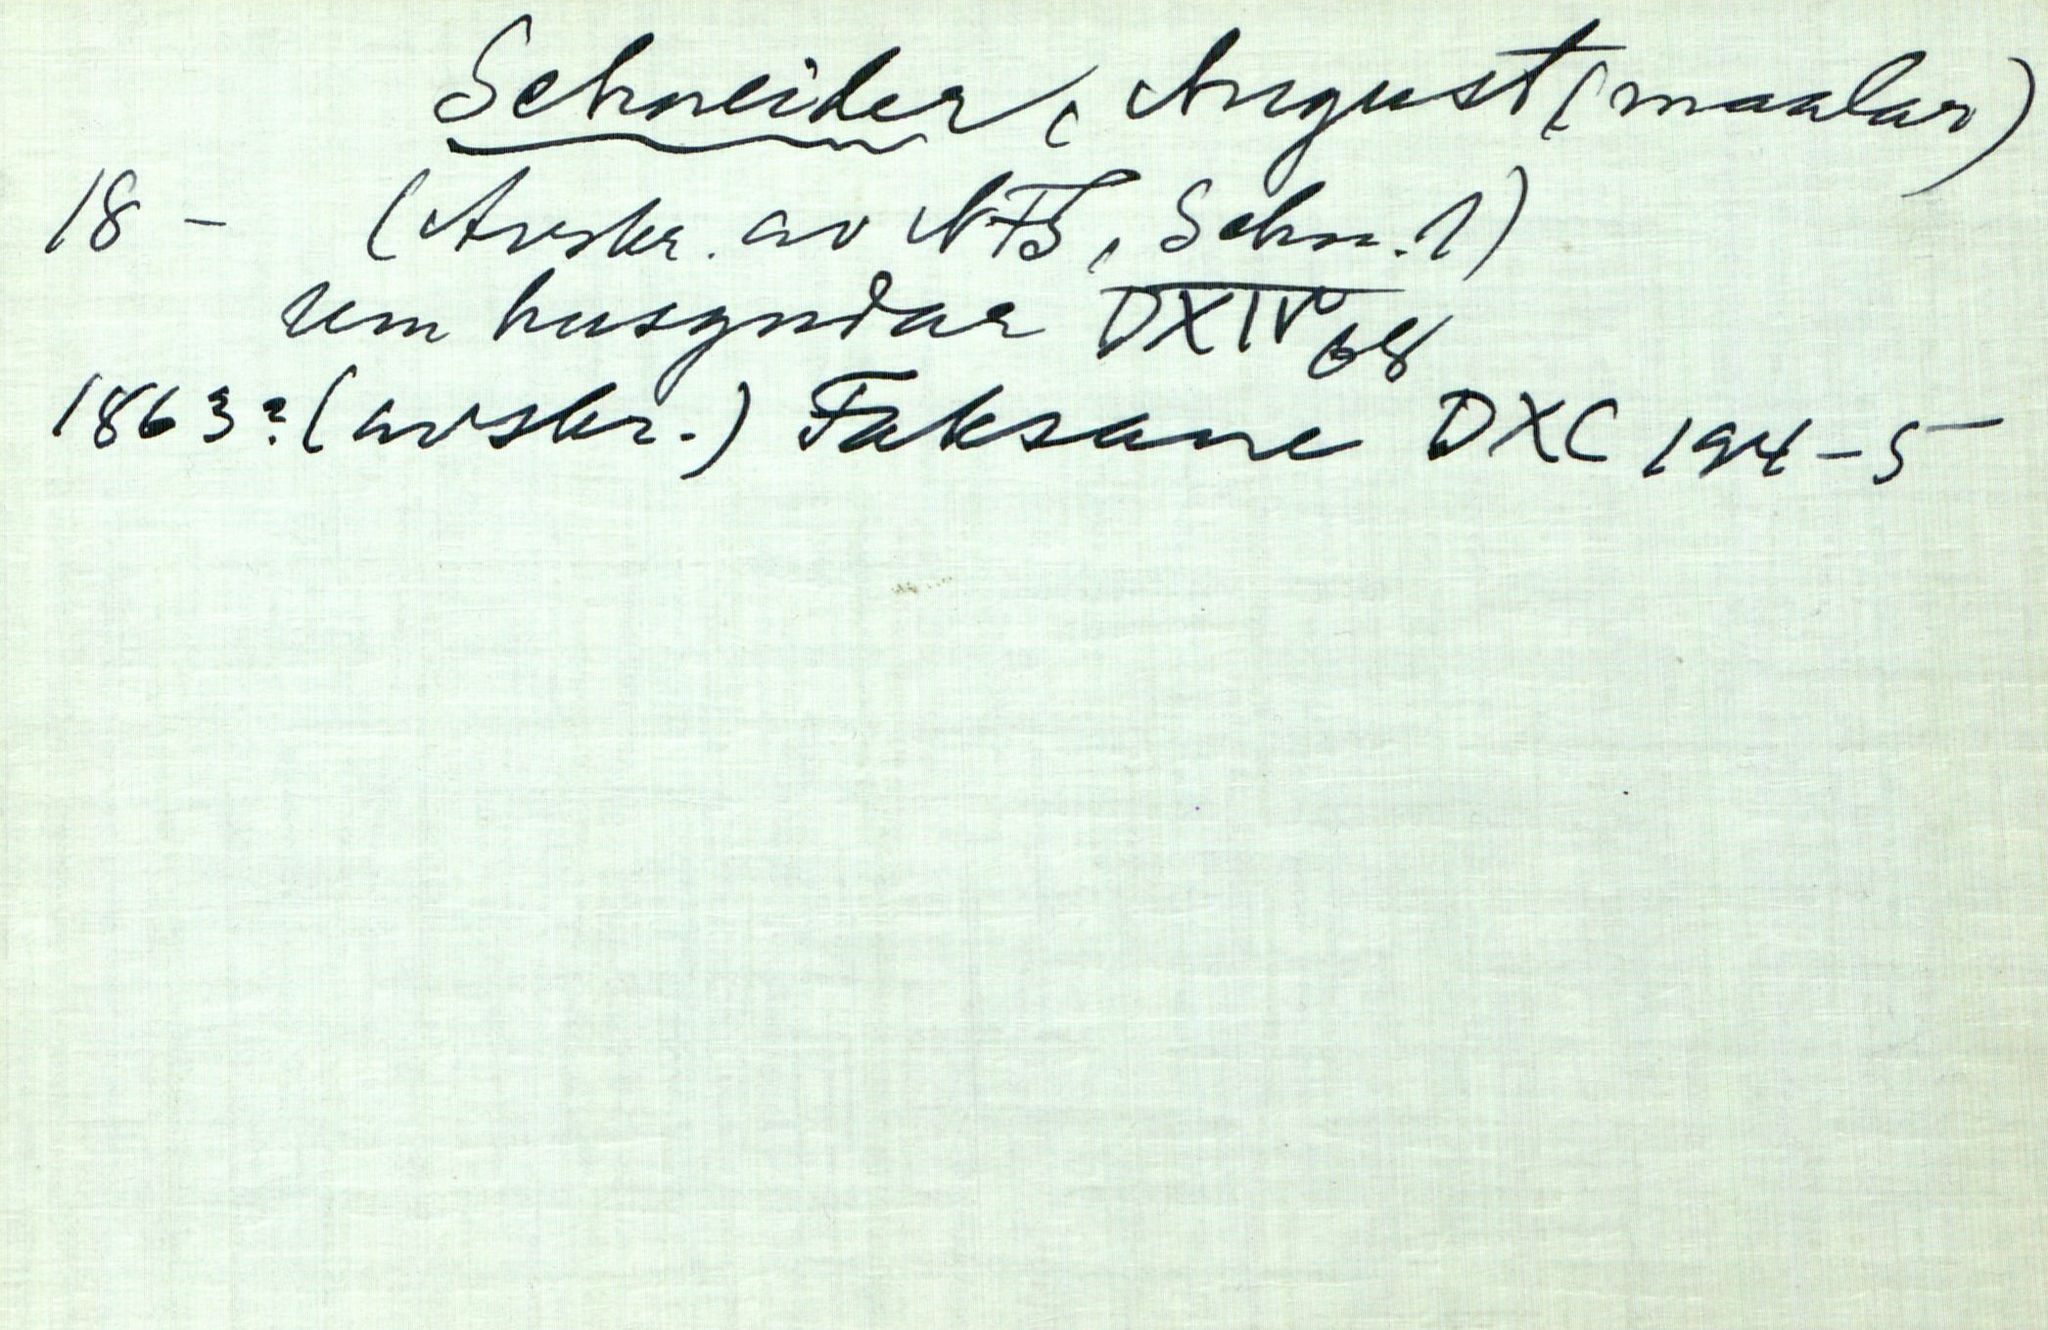 Schneider, August (maalar)
18 - (Avskr. av NFS, Schn. 1)
um husgudar DXIV 68
1863? (avskr.) Faksane DXC 194-5